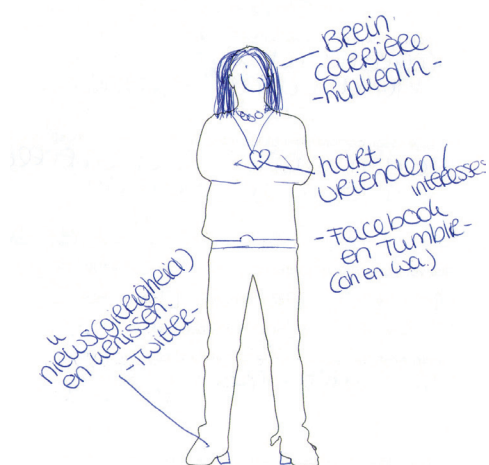 Brein
carrière
-Linkedin-
hart
vrienden/
interesses
-Facebook
en Tumblr-
(oh en wa.)
nieuws(gierigheid)
en
-Twitter-